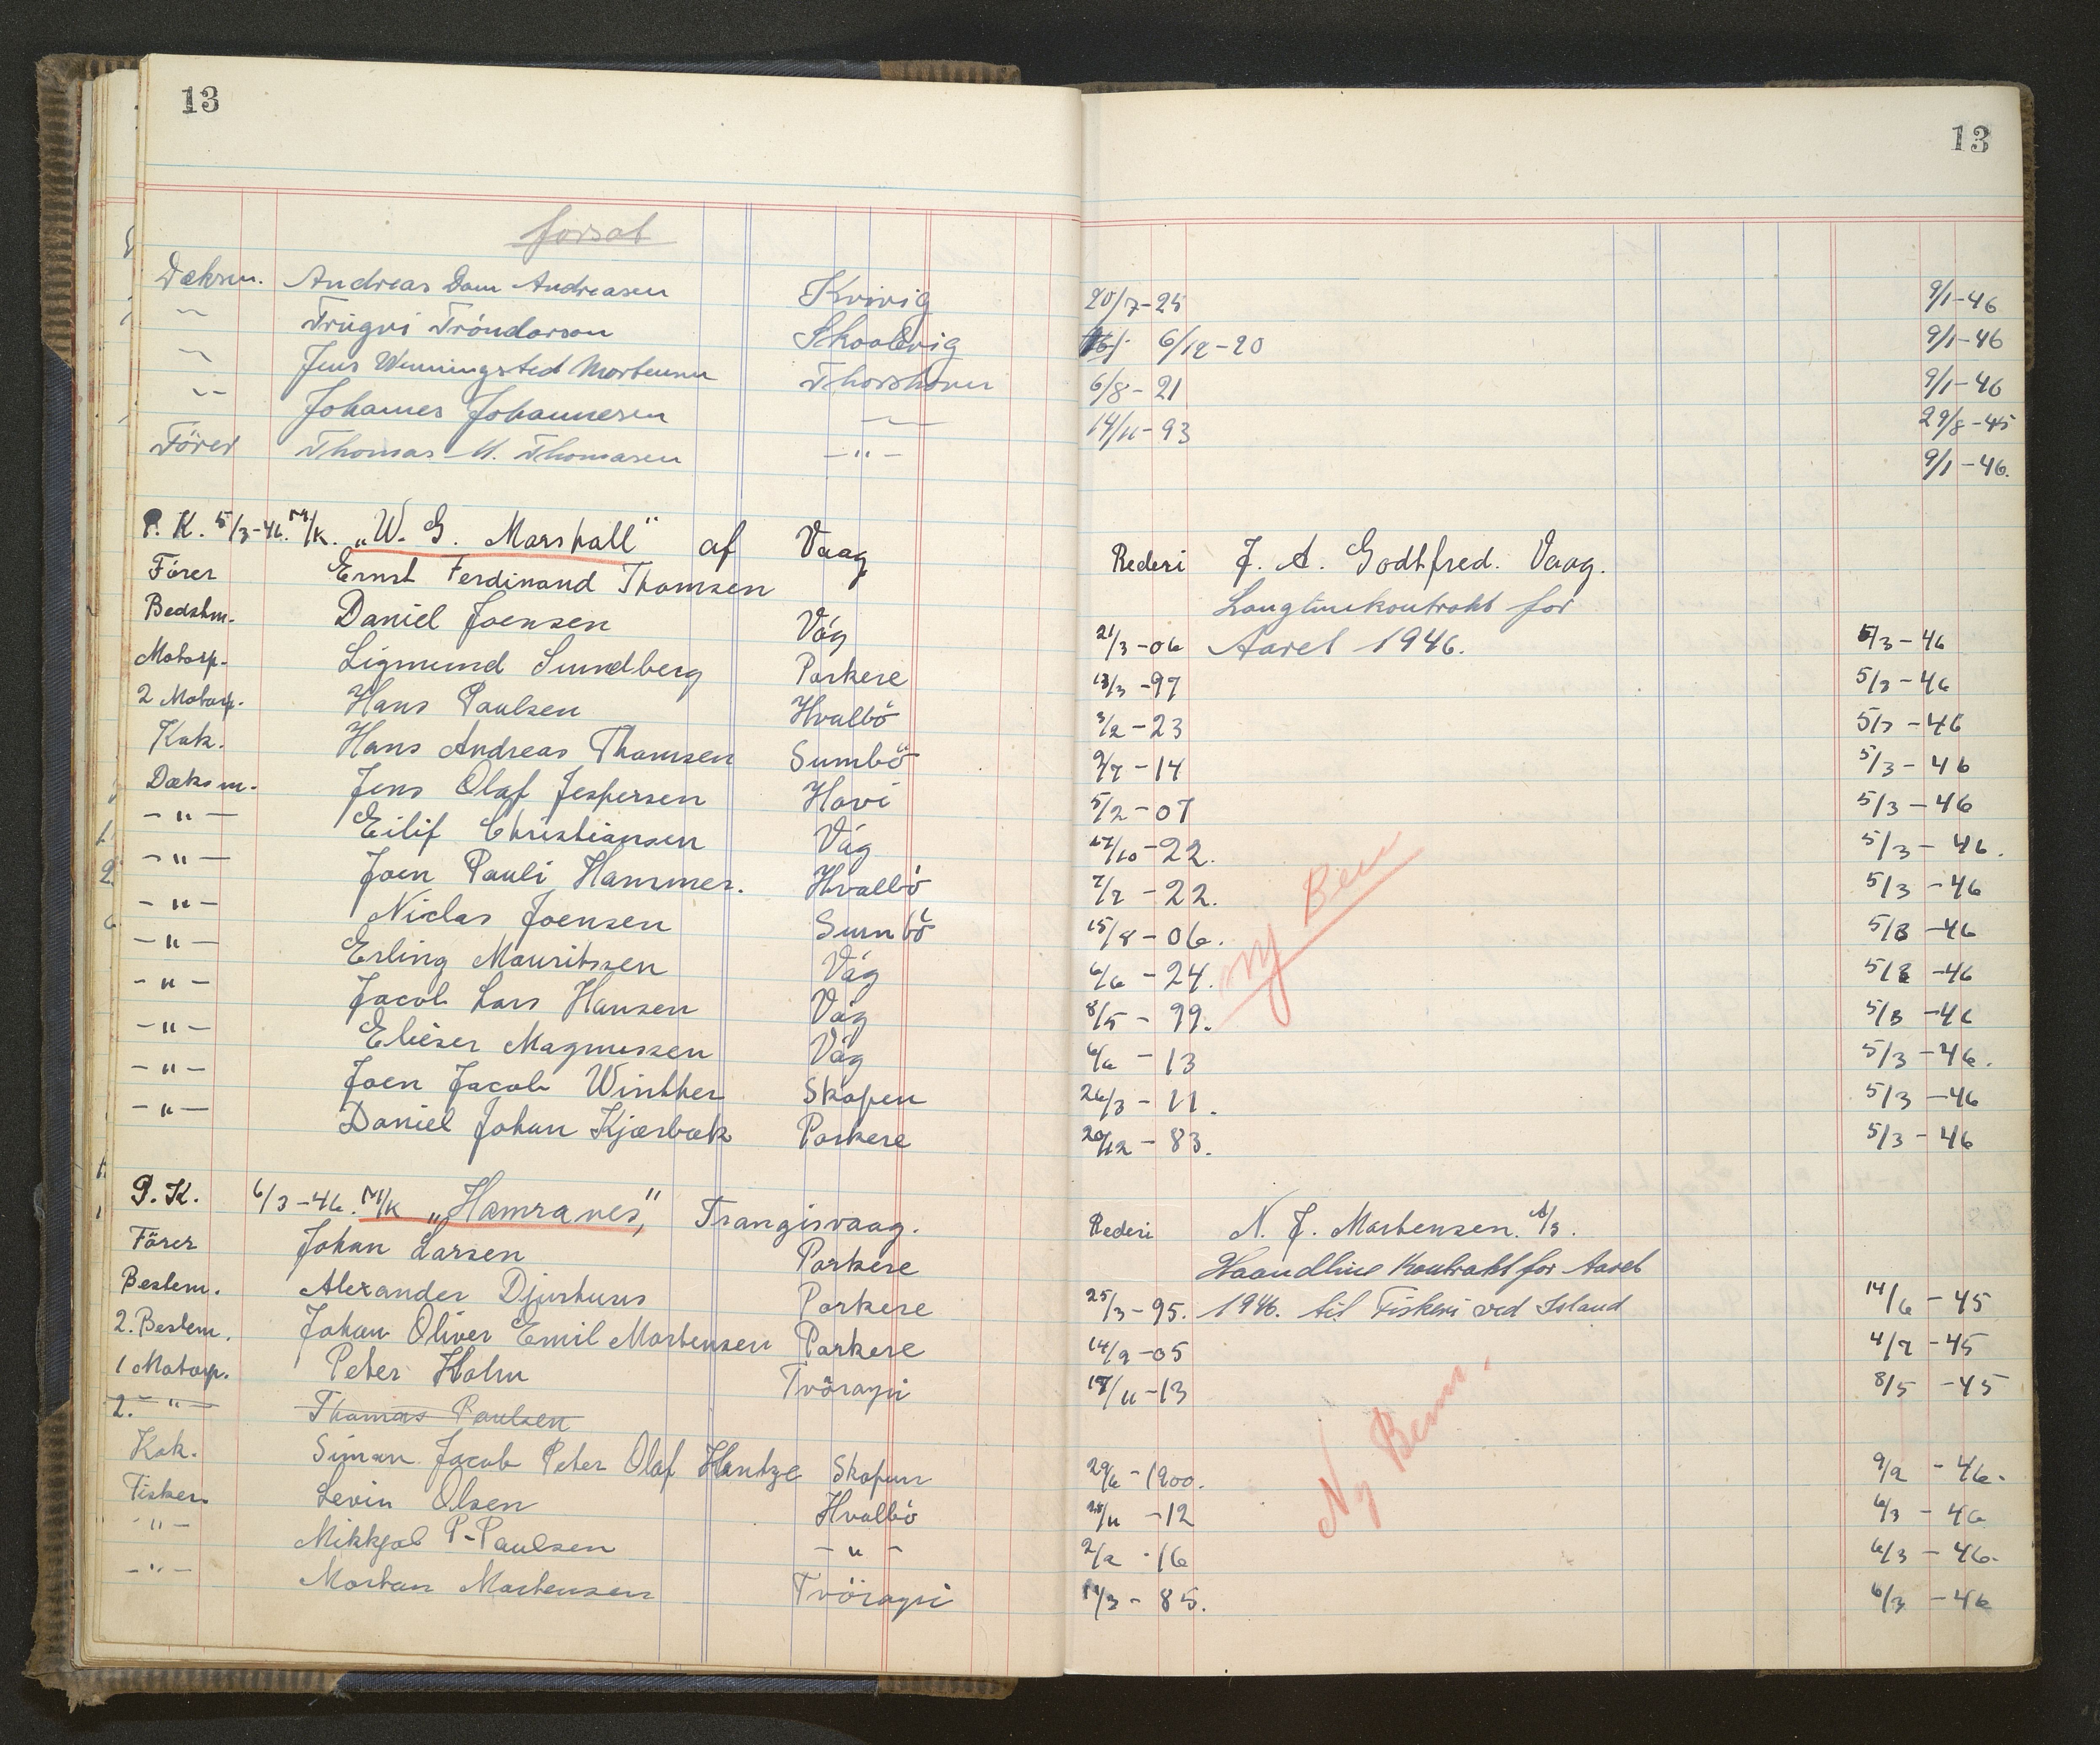 13
13
forsat
Dæksm. Andreas Dam Andreasen Kvivig 20/7-25 9/1-46
Trúgvi Tróndarson Skaalevig 6/12-20 9/1-46
Jens Wenningsted Mortensen Thorshavn 6/8-21 9/1-46
Johannes Johannesen 14/11-93 29/8-45
Förer Thomas M. Thomasen -"- 9/1-46.
P. K. 5/3-46. M/K. „W. G. Marshall" af Vaag Rederi J. A. Godtfred. Vaag.
Förer Ernst Ferdinand Thomsen Langlinekontrakt for
Bedstm. Daniel Joensen Vág 21/3-06 Aaret 1946. 5/3-46
Motorp. Sigmund Sundberg Porkere 13/3-97 5/3-46
2 Motorp. Hans Paulsen Hvalbö 3/2-23 5/3-46
Kok. Hans Andreas Thomsen Sumbö 9/7-14 5/3-46
Dæksm. Jens Olaf Jespersen Hovi 5/2-07 5/3-46
-"- Eilif Christiansen Vág 17/10-22. 5/3-46.
-"- Joen Pauli Hammer. Hvalbö 7/7-22. 5/3-46
-"- Niclas Joensen Sumbö 15/8-06. 5/3-46
-"- Erling Mouritsen Vág 6/6-24. 5/3-46
-"- Jacob Lars Hansen Vág 8/5-99. 5/3-46
-"- Elieser Magnussen Vág 6/6-13 5/3-46.
-"- Joen Jacob Winther Skopun 26/3-11. 5/3-46
-"- Daniel Johan Kjærbæk Porkere 20/12-83. 5/3-46
Ny Bem
P. K. 6/3-46. M/K „Hamranes", Trangisvaag. Rederi N. J. Mortensen. A/S.
Förer Johan Larsen Porkere Haandline Kontrakt for Aaret
Bestem. Alexander Djurhuus Porkere 25/3-95. 1946. til Fiskeri ved Island 14/6-45
2. Bestem. Johan Oliver Emil Mortensen Porkere 14/9-05 4/7-45
1 Motorp. Peter Holm Tvöroyri 17/11-13 8/5-45
2. -"- Thomas Paulsen
Kok. Siman Jacob Peter Olaf Hentze Skopun 29/6-1900. 9/2-46.
Fisker. Levin Olsen Hvalbö 25/11-12 6/3-46
-"- Mikkjal P-Paulsen -"- 2/2-16 6/3-46.
-"- Mortan Mortensen Tvöroyri 14/3-85. 6/3-46
Ny Bem.